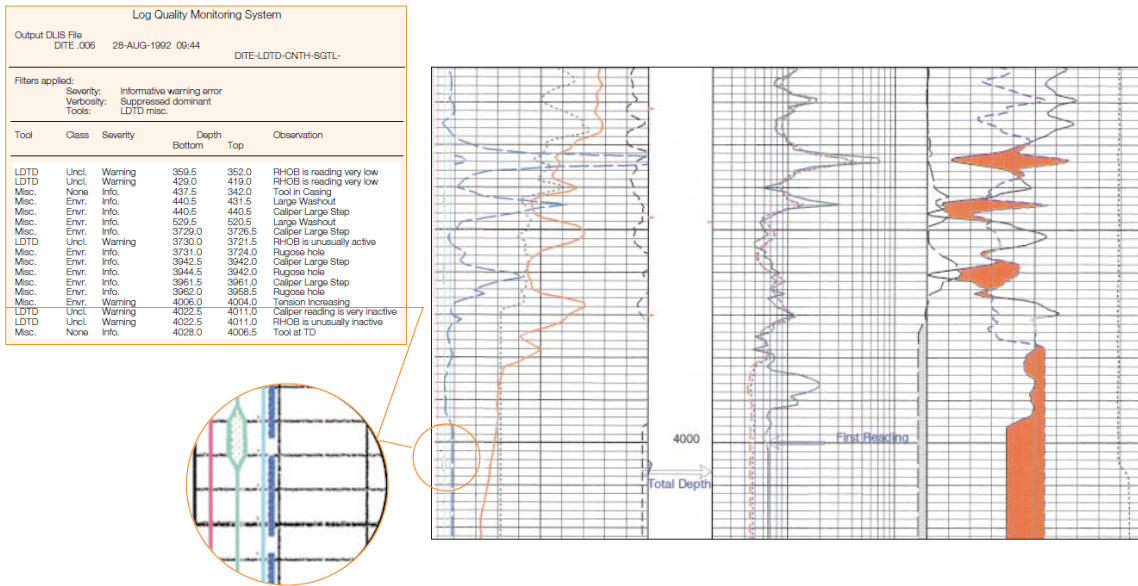 Log Quality Monitoring System
Output DLIS File
DITE .006 28-AUG-1992 09:44
DITE-LDTD-CNTH-SGTL-
Filters applied:
Severity: Informative warning error
Verbosity: Suppressed dominant
Tools: LDTD misc.
Tool Class Severity Depth Observation
Bottom Top
LDTD Uncl. Warning 359.5 352.0 RHOB is reading very low
LDTD Uncl. Warning 429.0 419.0 RHOB is reading very low
Misc. None Info. 437.5 342.0 Tool in Casing
Misc. Envr. Info. 440.5 431.5 Large Washout
Misc. Envr. Info. 440.5 440.5 Caliper Large Step
Misc. Envr. Info. 529.5 520.5 Large Washout
Misc. Envr. Info. 3729.0 3726.5 Caliper Large Step
LDTD Uncl. Warning 3730.0 3721.5 RHOB is unusually active
Misc. Envr. Info. 3731.0 3724.0 Rugose hole
Misc. Envr. Info. 3942.5 3942.0 Caliper Large Step
Misc. Envr. Info. 3944.5 3942.0 Rugose hole
Misc. Envr. Info. 3961.5 3961.0 Caliper Large Step
Misc. Envr. Info. 3962.0 3958.5 Rugose hole
Misc. Envr. Warning 4006.0 4004.0 Tension Increasing
LDTD Uncl. Warning 4022.5 4011.0 Caliper reading is very inactive
LDTD Uncl. Warning 4022.5 4011.0 RHOB is unusually inactive
Misc. None Info. 4028.0 4006.5 Tool at TD
4000
First Reading
Total Depth